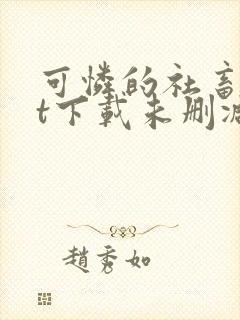 可憐的社畜
t下載未刪減
趙秀如